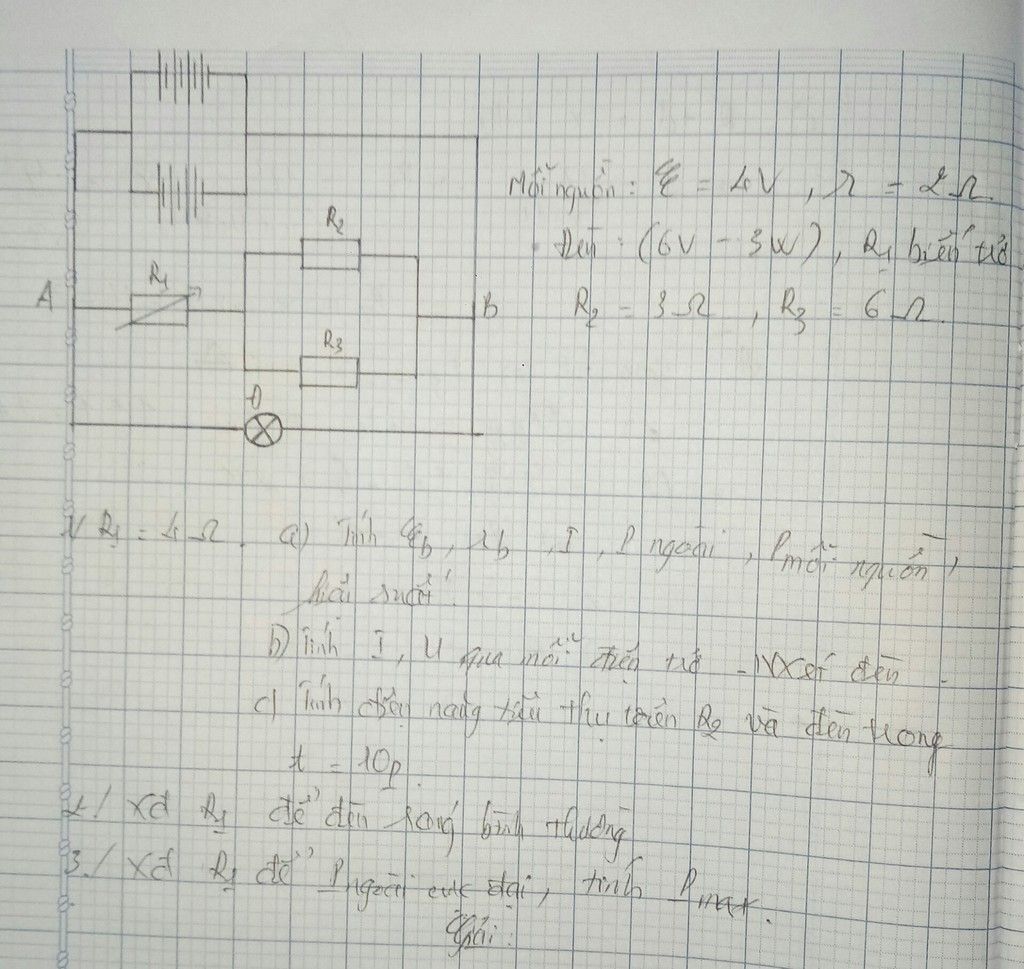 Mỗi nguồn : ℰ = 4V , r = 2 Ω
Đèn : (6V - 3W) , R1 biến trở
R2 = 3 Ω , R3 = 6 Ω
R2
R1
A
B
R3
Đ
1/ R1 = 4 Ω . a) Tính ℰb , rb , I , P ngoài , P mỗi nguồn ,
hiệu suất .
b) Tính I , U qua mỗi điện trở - NXét đèn .
c) Tính điện năng tiêu thụ trên R2 và đèn trong
t = 10p .
2./ Xđ R1 để đèn sáng bình thường
3./ Xđ R1 để P ngoài cực đại , tính Pmax .
Giải :